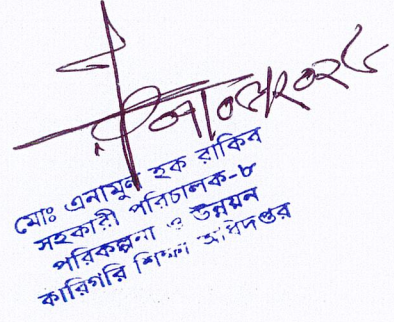 মোঃ এনামুল হক রাকিব
সহকারী পরিচালক-৮
পরিকল্পনা ও উন্নয়ন
কারিগরি শিক্ষা অধিদপ্তর